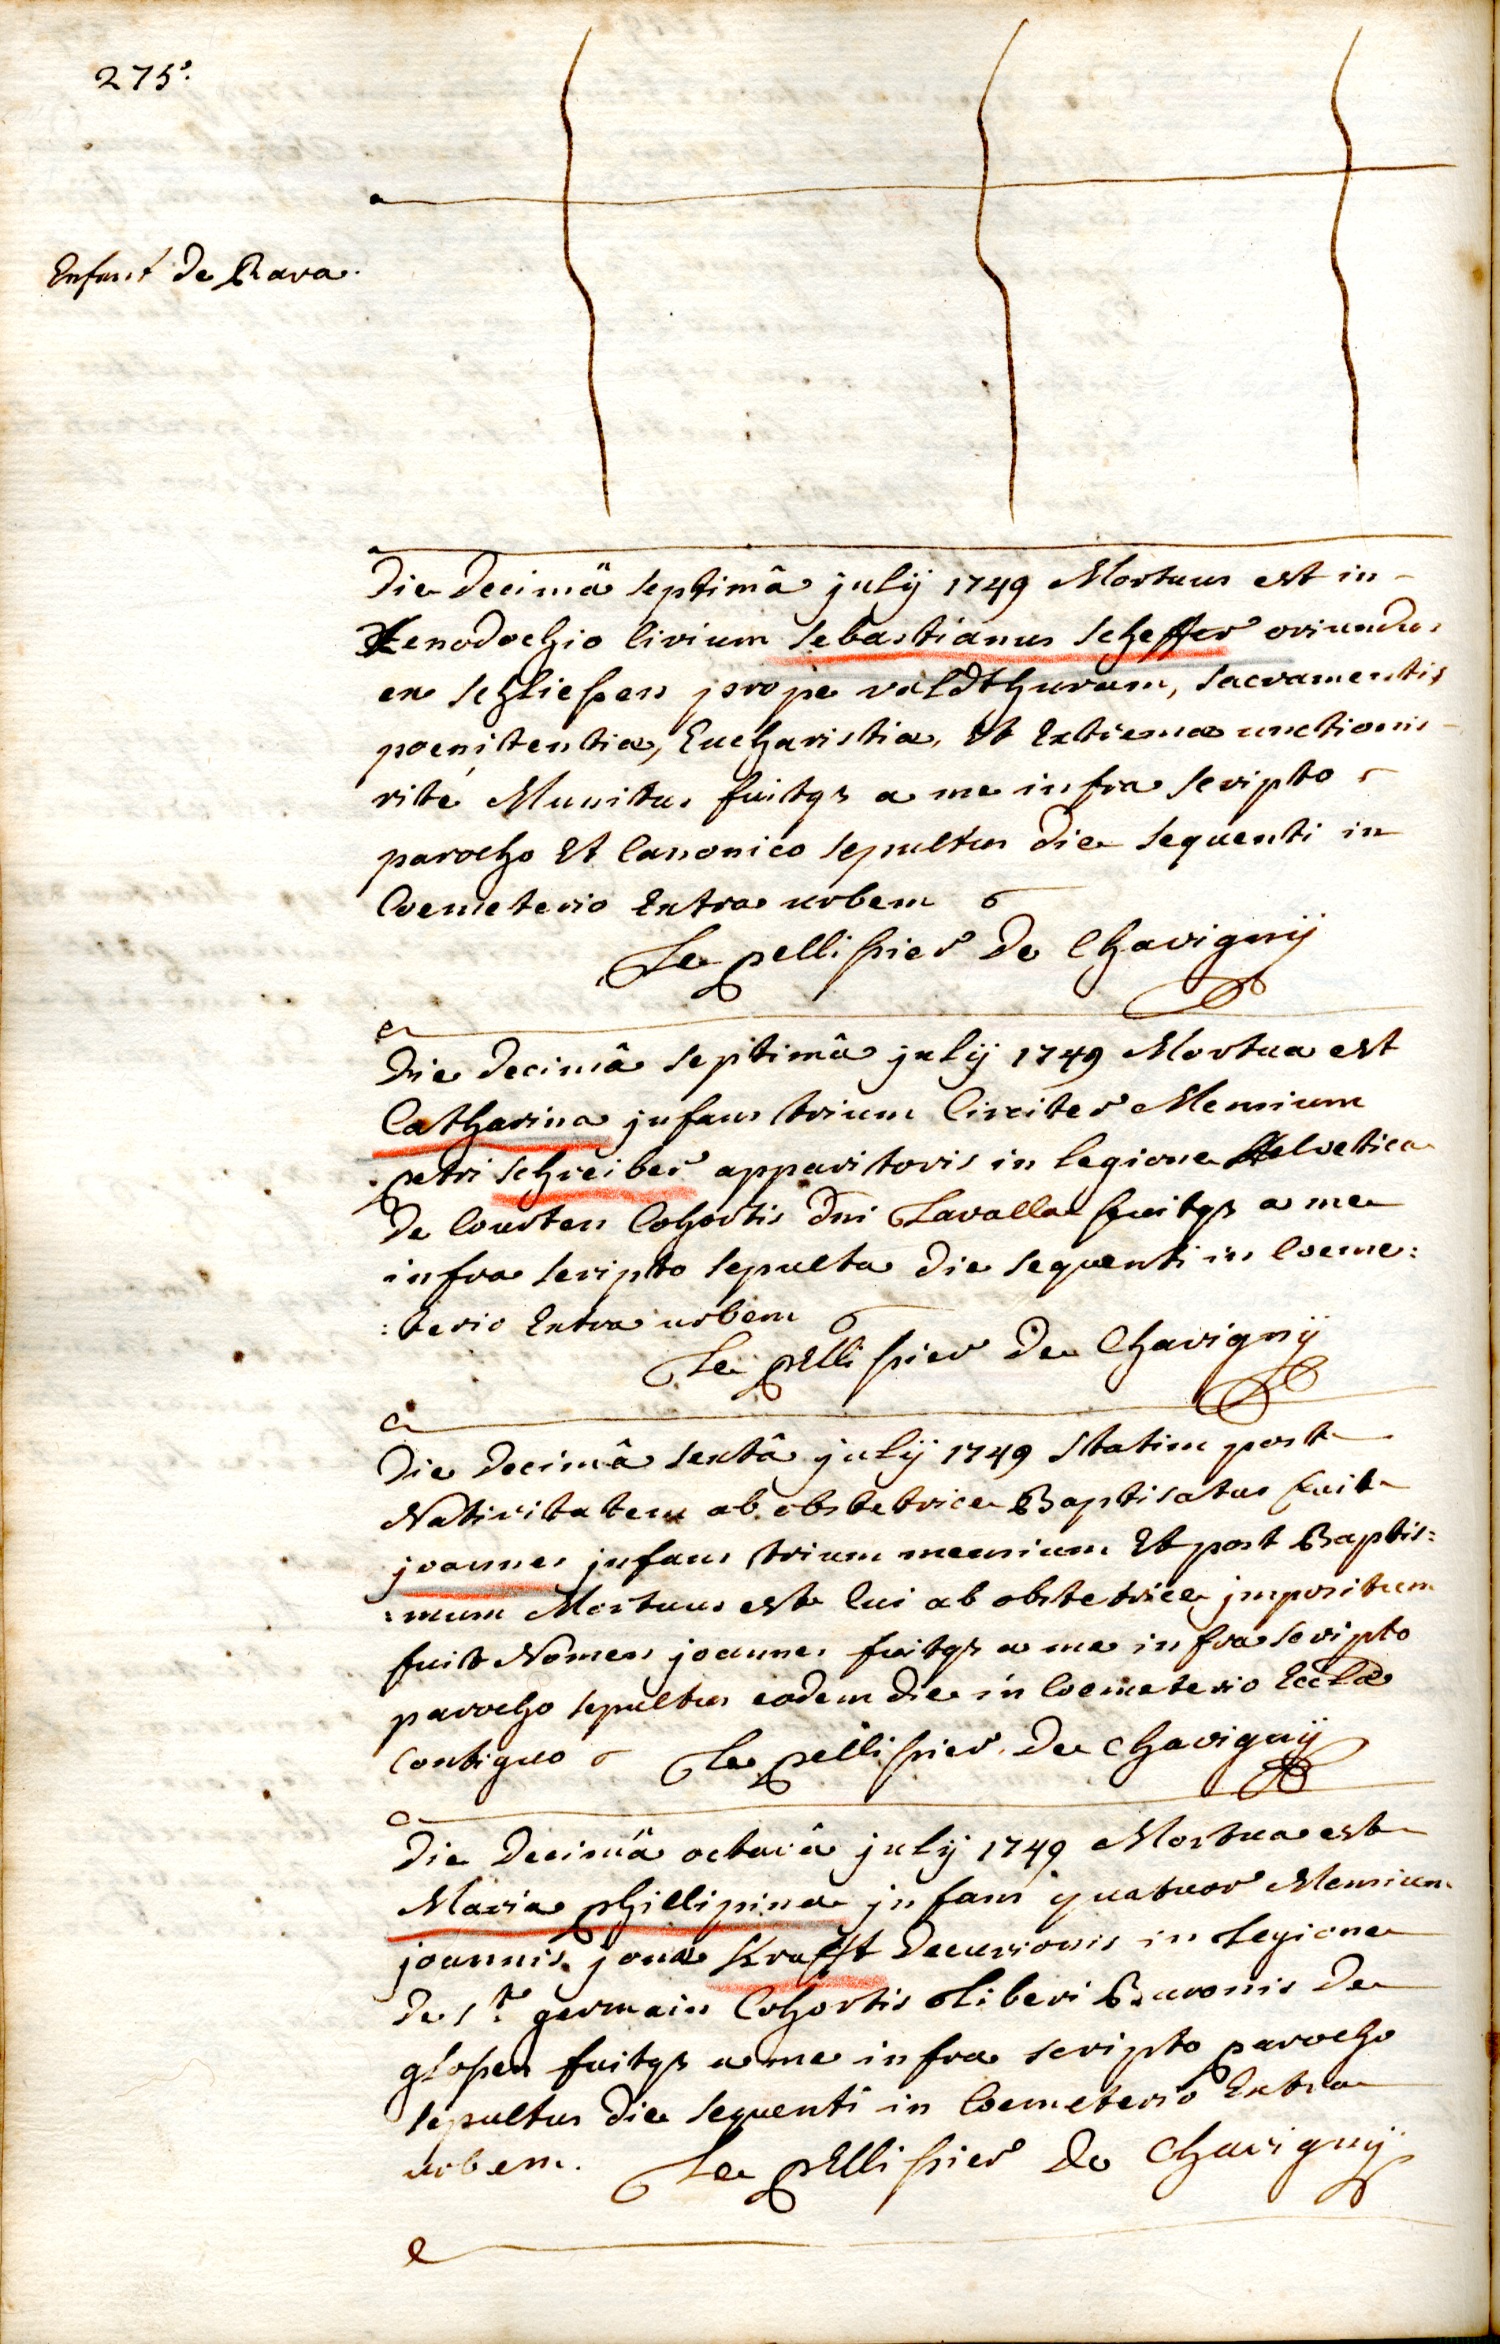 275.
Enfant de Rava.
Die decimâ septimâ julÿ 1749 Mortuus est in
Xenodochio Civium sebastianus scheffer oriundus
ex schliessen prope valdthuram, sacramentis
poenitentiæ, Eucharistiæ, Et Extremæ unctionis
rité Munitus fuitqz a me infra scripto
parocho Et Canonico sepultus die sequenti in
Coemeterio Extra urbem
Le pellissier de Chavignÿ
Die decimâ septimâ julÿ 1749 Mortua est
Catharina jnfans trium Circiter Mensium
petri schreiber apparitoris in legione Helvetica
de Courten Cohortis dni Lavallaz fuitqz a me
infra scripto sepulta die sequenti in Coeme:
:terio Extra urbem
Le pEllissier de Chavignÿ
Die decimâ sextâ julÿ 1749 statim post
Nativitatem ab obstetrice Baptisatus fuit
joannes jnfans trium mensium Et post Baptis:
:mum Mortuus est Cui ab obstetrice jmpositum
fuit Nomen joannes fuitqz a me infra scripto
parocho sepultus eodem die in Coemeterio Ecclæ
Contiguo Le pellissier de chavignÿ
Die decimâ octavâ julÿ 1749 Mortua est
Maria phillipina jnfans quatuor Mensium
joannis jonæ Krafft decurionis in Legione
de st. germain Cohortis Liberi Baronis de
glosen fuitqz a me infra scripto parocho
sepultus die sequenti in Coemeterio Extra
urbem. Le pEllissier de Chavignÿ